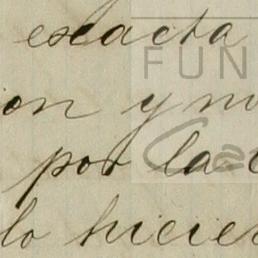 exacta
FUN
on y m
por la
lo hicie